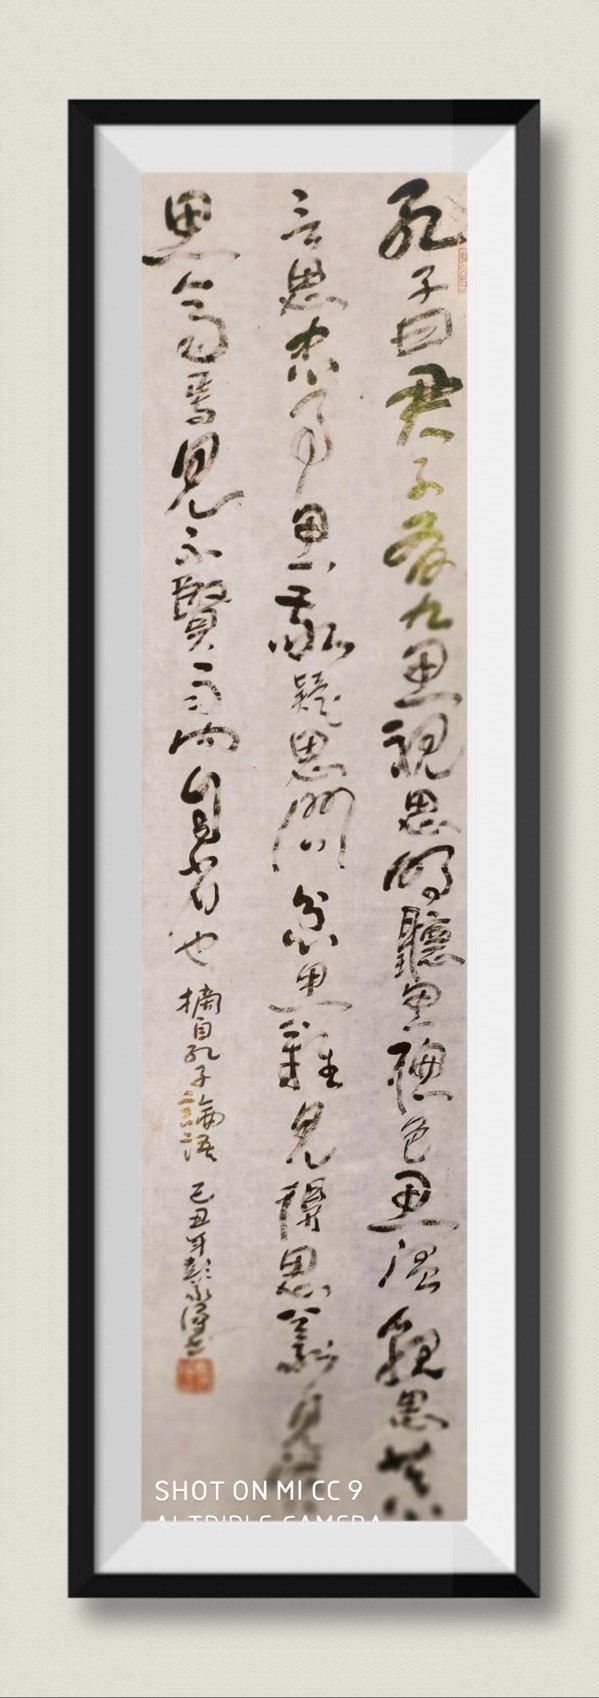 孔子曰君子有九思視思明聽思聰色思溫貌思恭
言思忠事思敬疑思問忿思難見得思義見賢
思齊焉見不賢而內自省也
摘自孔子論語 己丑年彭
SHOT ON MI CC 9
AI TRIPLE CAMERA